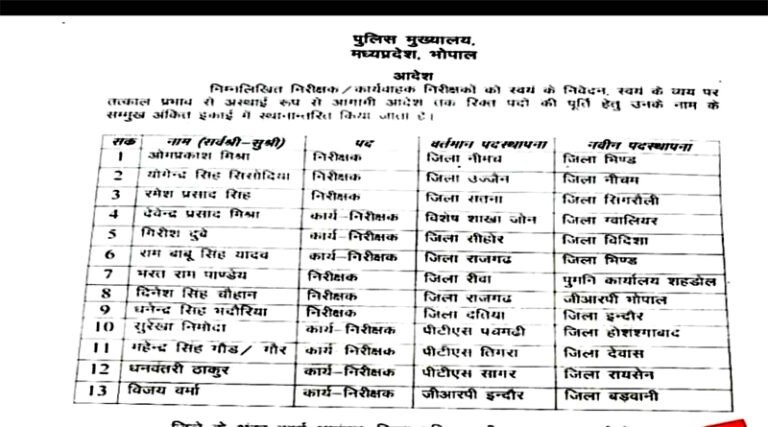 पुलिस मुख्यालय,
मध्यप्रदेश, भोपाल
आदेश
निम्नलिखित निरीक्षक/कार्यवाहक निरीक्षकों को स्वयं के निवेदन, स्वयं के व्यय पर
तत्काल प्रभाव से अस्थाई रूप से आगामी आदेश तक रिक्त पदों की पूर्ति हेतु उनके नाम के
सम्मुख अंकित इकाई में स्थानान्तरित किया जाता है।
सक नाम (सर्वश्री-सुश्री) पद वर्तमान पदस्थापना नवीन पदस्थापना
1 ओमप्रकाश मिश्रा निरीक्षक जिला नीमच जिला भिण्ड
2 योगेन्द्र सिंह सिसोदिया निरीक्षक जिला उज्जैन जिला नीचम
3 रमेश प्रसाद सिंह निरीक्षक जिला सतना जिला सिंगरौली
4 देवेन्द्र प्रसाद मिश्रा कार्य-निरीक्षक विशेष शाखा जोन जिला ग्वालियर
5 गिरीश दुबे कार्य-निरीक्षक जिला सीहोर जिला विदिशा
6 राम बाबू सिंह यादव कार्य-निरीक्षक जिला राजगढ जिला भिण्ड
7 भरत राम पाण्डेय निरीक्षक जिला रीवा पुमनि कार्यालय शहडोल
8 दिनेश सिंह चौहान निरीक्षक जिला राजगढ जीआरपी भोपाल
9 धनेन्द्र सिंह भदौरिया निरीक्षक जिला दतिया जिला इन्दौर
10 सुरेखा निमोदा कार्य-निरीक्षक पीटीएस पचमढी जिला होशंगाबाद
11 महेन्द्र सिंह गौड/ गौर कार्य निरीक्षक पीटीएस तिगरा जिला देवास
12 धनवंतरी ठाकुर कार्य-निरीक्षक पीटीएस सागर जिला रायसेन
13 विजय वर्मा कार्य-निरीक्षक जीआरपी इन्दौर जिला बड़वानी